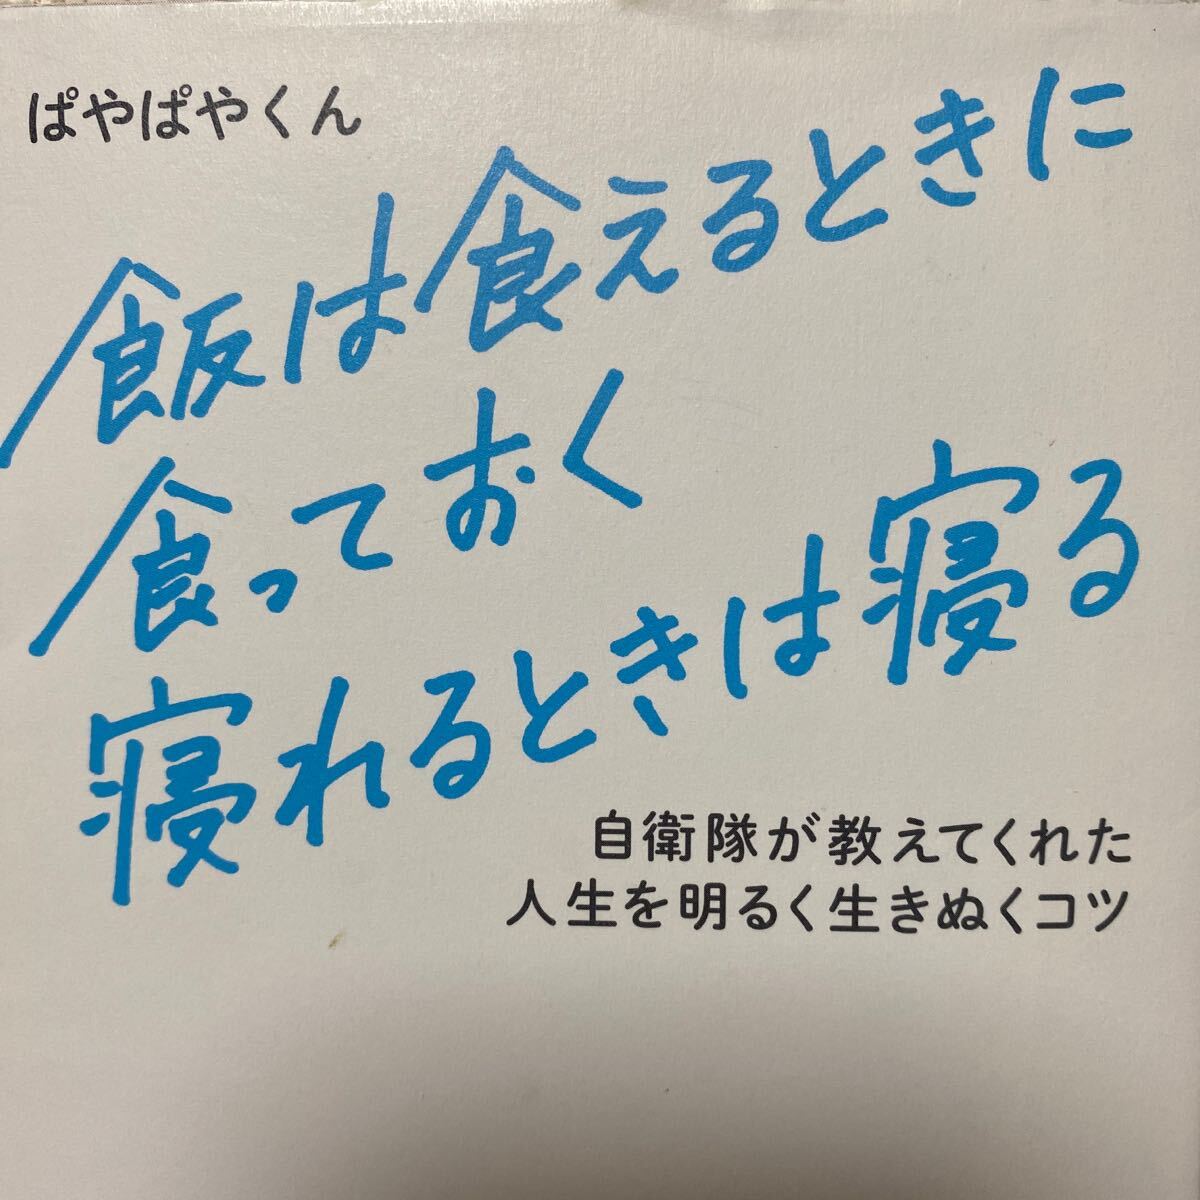 ぱやぱやくん
飯は食えるときに
食っておく
寝れるときは寝る
自衛隊が教えてくれた
人生を明るく生きぬくコツ